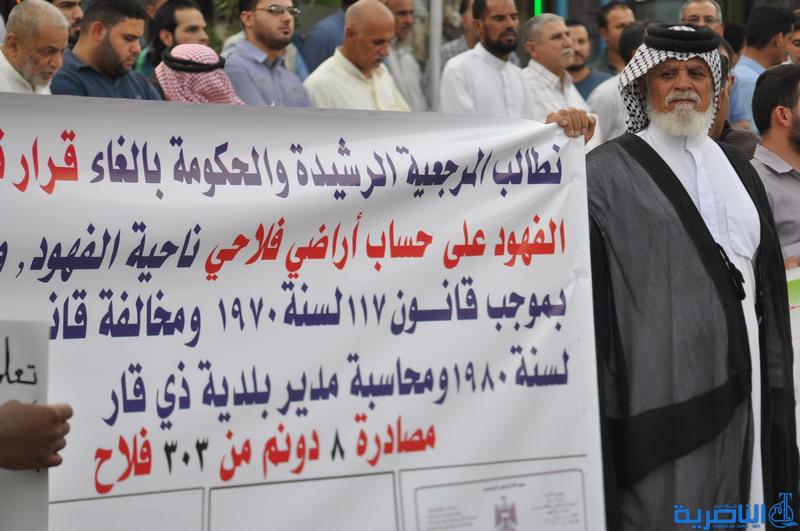 نطالب المرجعية الرشيدة والحكومة بالغاء قرار
الفهود على حساب أراضي فلاحي ناحية الفهود ,
بموجب قانون ١١٧ لسنة ١٩٧٠ ومخالفة
لسنة ١٩٨٠ ومحاسبة مدير بلدية ذي قار
مصادرة ٨ دونم من ٣٠٣ فلاح
الناصرية